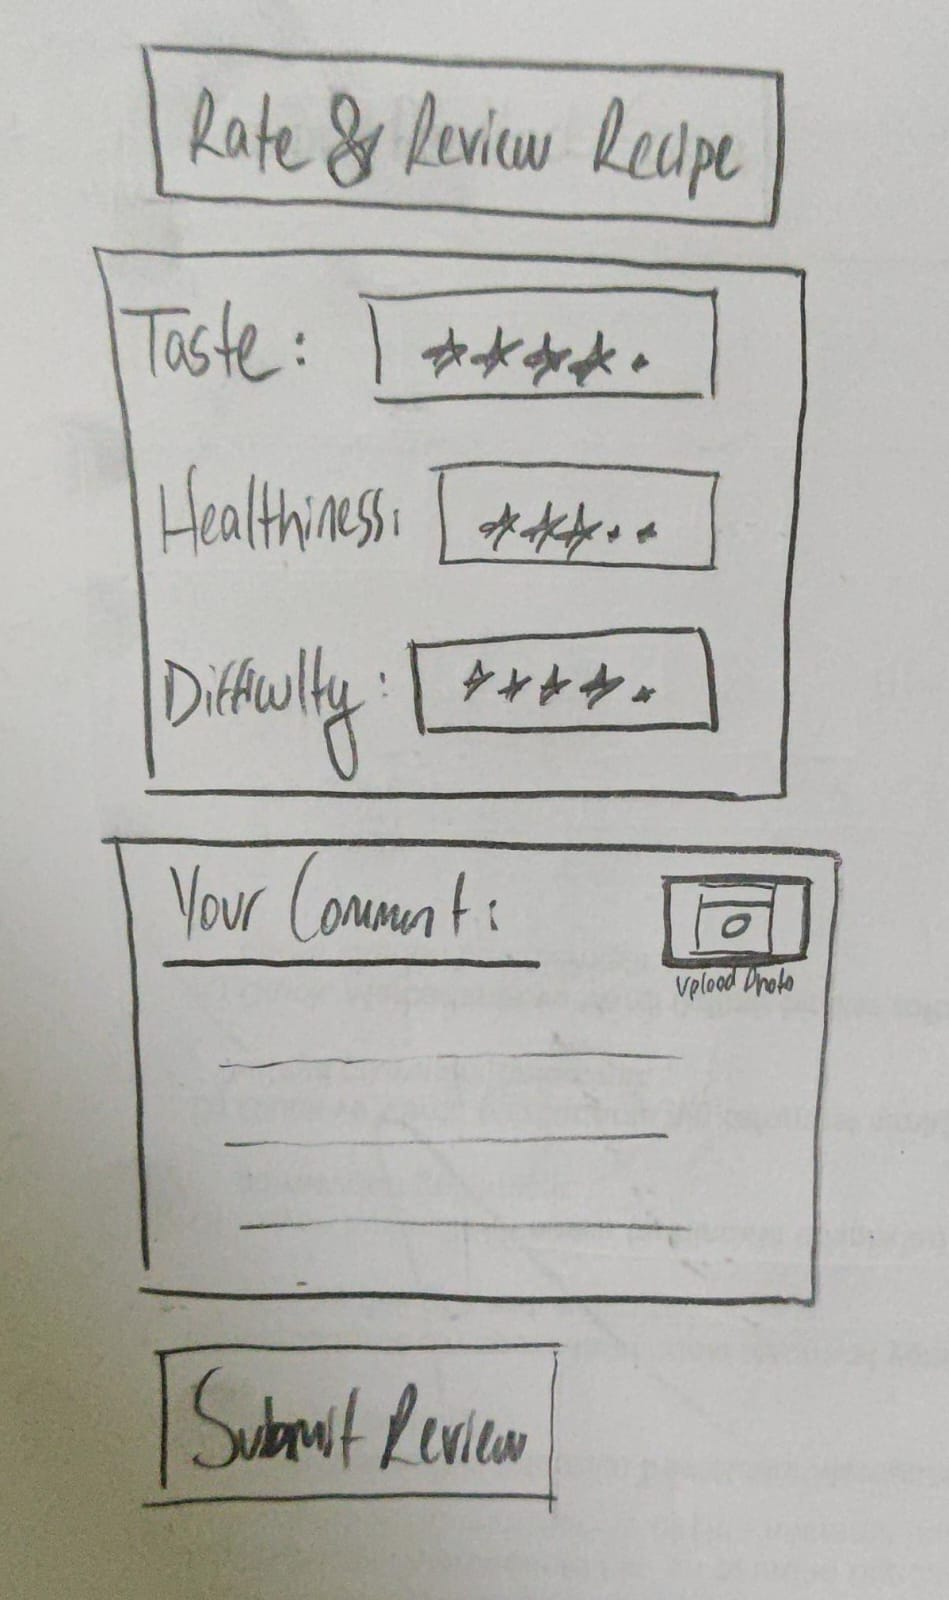 Rate & Review Recipe
Taste: ★★★★•
Healthiness: ★★★••
Difficulty: ★★★★•
Your Comment:
Upload Photo
Submit Review